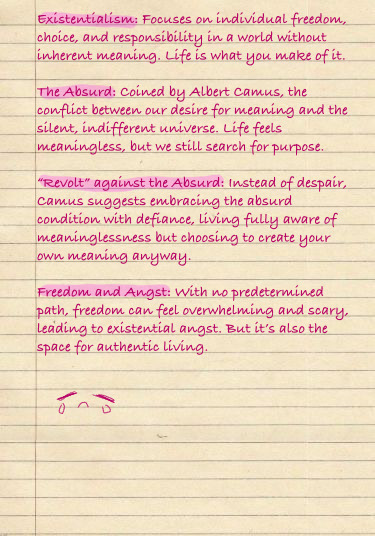 Existentialism: Focuses on individual freedom,
choice, and responsibility in a world without
inherent meaning. Life is what you make of it.
The Absurd: Coined by Albert Camus, the
conflict between our desire for meaning and the
silent, indifferent universe. Life feels
meaningless, but we still search for purpose.
“Revolt” against the Absurd: Instead of despair,
Camus suggests embracing the absurd
condition with defiance, living fully aware of
meaninglessness but choosing to create your
own meaning anyway.
Freedom and Angst: With no predetermined
path, freedom can feel overwhelming and scary,
leading to existential angst. But it’s also the
space for authentic living.